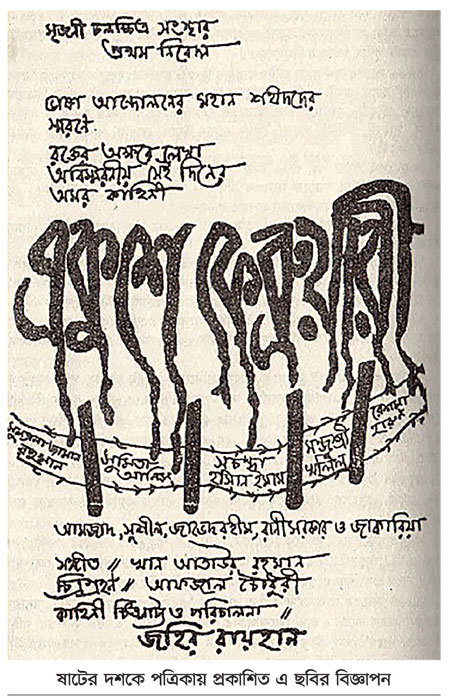 সৃজনী চলচ্চিত্র সংস্থার
প্রথম নিবেদন
ভাষা আন্দোলনের মহান শহীদদের
স্মরণে
রক্তের অক্ষরে লেখা
অবিস্মরণীয় সেই দিনের
অমর কাহিনী
একুশে ফেব্রুয়ারী
রহমান
সুমিতা
আনিস
সুচন্দা
হাসান ইমাম
খলিল
রেশমা
আমজাদ, সুশীল, জাভেদ রহীম, রানী সরকার ও জাকারিয়া
সঙ্গীত // খান আতাউর রহমান
চিত্রগ্রহণ // আফজাল চৌধুরী
কাহিনী চিত্রনাট্য ও পরিচালনা //
জহির রায়হান
ষাটের দশকে পত্রিকায় প্রকাশিত এ ছবির বিজ্ঞাপন